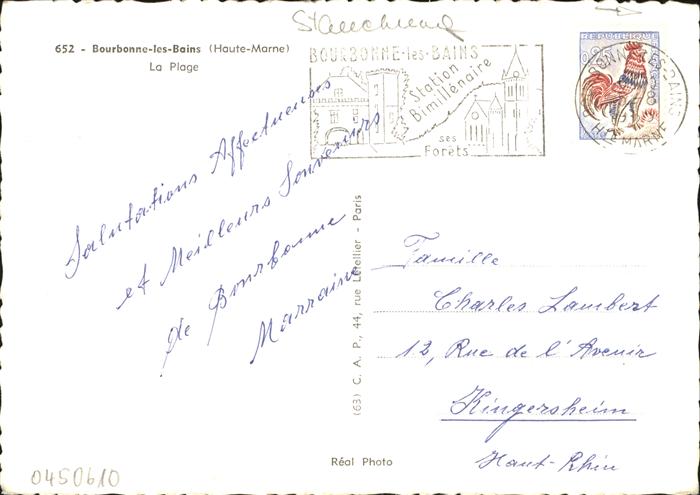 652 - Bourbonne-les-Bains (Haute-Marne)
La Plage
BOURBONNE-les-BAINS
Station
Bimillénaire
ses
Forêts
REPUBLIQUE
BOURBONNE LES BAINS
HTE MARNE
Salutations Affectueuses
et Meilleurs Souvenirs
de Bourbonne
Marraine
(63) C. A. P., 44, rue Letellier - Paris
Famille
Charles Lambert
12, Rue de l'Avenir
Kingersheim
Haut-Rhin
Réal Photo
0450610